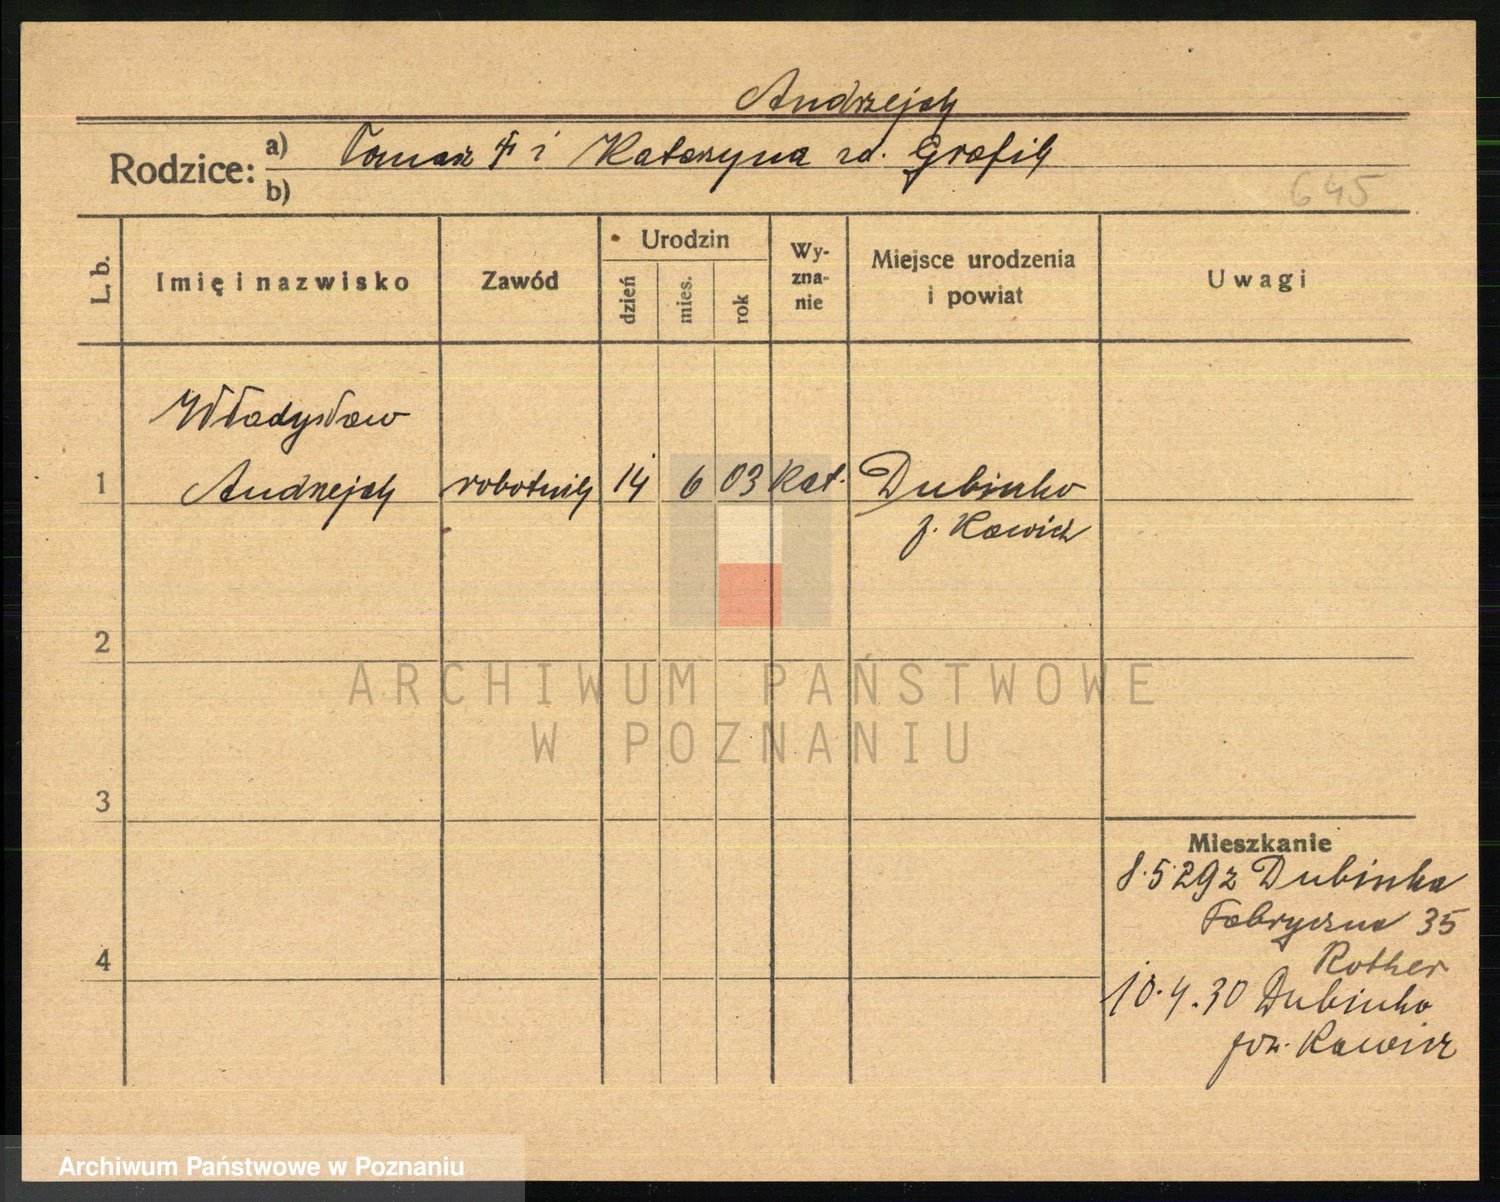 Andrzejak
Rodzice: a) Tomasz † i Katarzyna zd. Grafik
b)
645
L. b.
Imię i nazwisko
Zawód
Urodzin
dzień
mies.
rok
Wy-
zna-
nie
Miejsce urodzenia
i powiat
Uwagi
Władysław
1 Andrzejak robotnik 14 6 03 kat. Dubinko
p. Rawicz
2
ARCHIWUM PAŃSTWOWE
W POZNANIU
3
Mieszkanie
8.5.29 z Dubinka
Fabryczna 35
4
Rother
10.4.30 Dubinko
pow. Rawicz
Archiwum Państwowe w Poznaniu